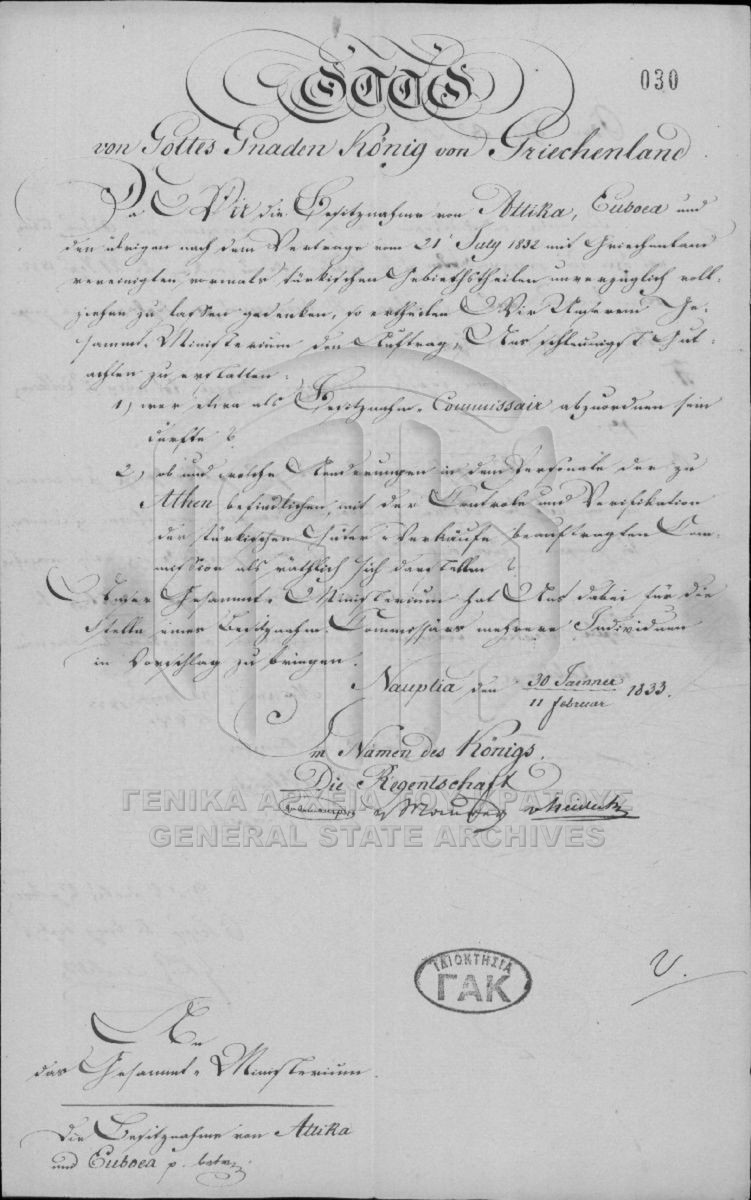 OTTO
030
von Gottes Gnaden König von Griechenland
Da Wir die Besitznahme von Attika, Euboea und
den übrigen nach dem Vertrage vom 21t July 1832 mit Griechenland
vereinigten, vormals türkischen Gebiethstheilen unverzüglich voll-
ziehen zu lassen gedenken, so ertheilen Wir Unserem Ge-
sammt-Ministerium den Auftrag, Uns schleunigst Gut-
achten zu erstatten:
1) wer etwa als Besitznahm-Commissair abzuordnen sein
dürfte?
2) ob und welche Aenderungen in dem Personale der zu
Athen befindlichen, mit der Controle und Verifikation
der türkischen Güter-Verkäufe beauftragten Com-
mission als räthlich sich darstellen?
Unser Gesammt-Ministerium hat Uns dabei für die
Stelle eines Besitznahm-Commissärs mehrere Individuen
in Vorschlag zu bringen.
Nauplia den 30 Jänner / 11 Februar 1833.
Im Namen des Königs.
Die Regentschaft
v Maurer vHeideck
ΓΕΝΙΚΑ ΑΡΧΕΙΑ ΤΟΥ ΚΡΑΤΟΥΣ
GENERAL STATE ARCHIVES
ΙΔΙΟΚΤΗΣΙΑ
ΓΑΚ
An
das Gesammt-Ministerium.
Die Besitznahme von Attika
und Euboea p. betr.